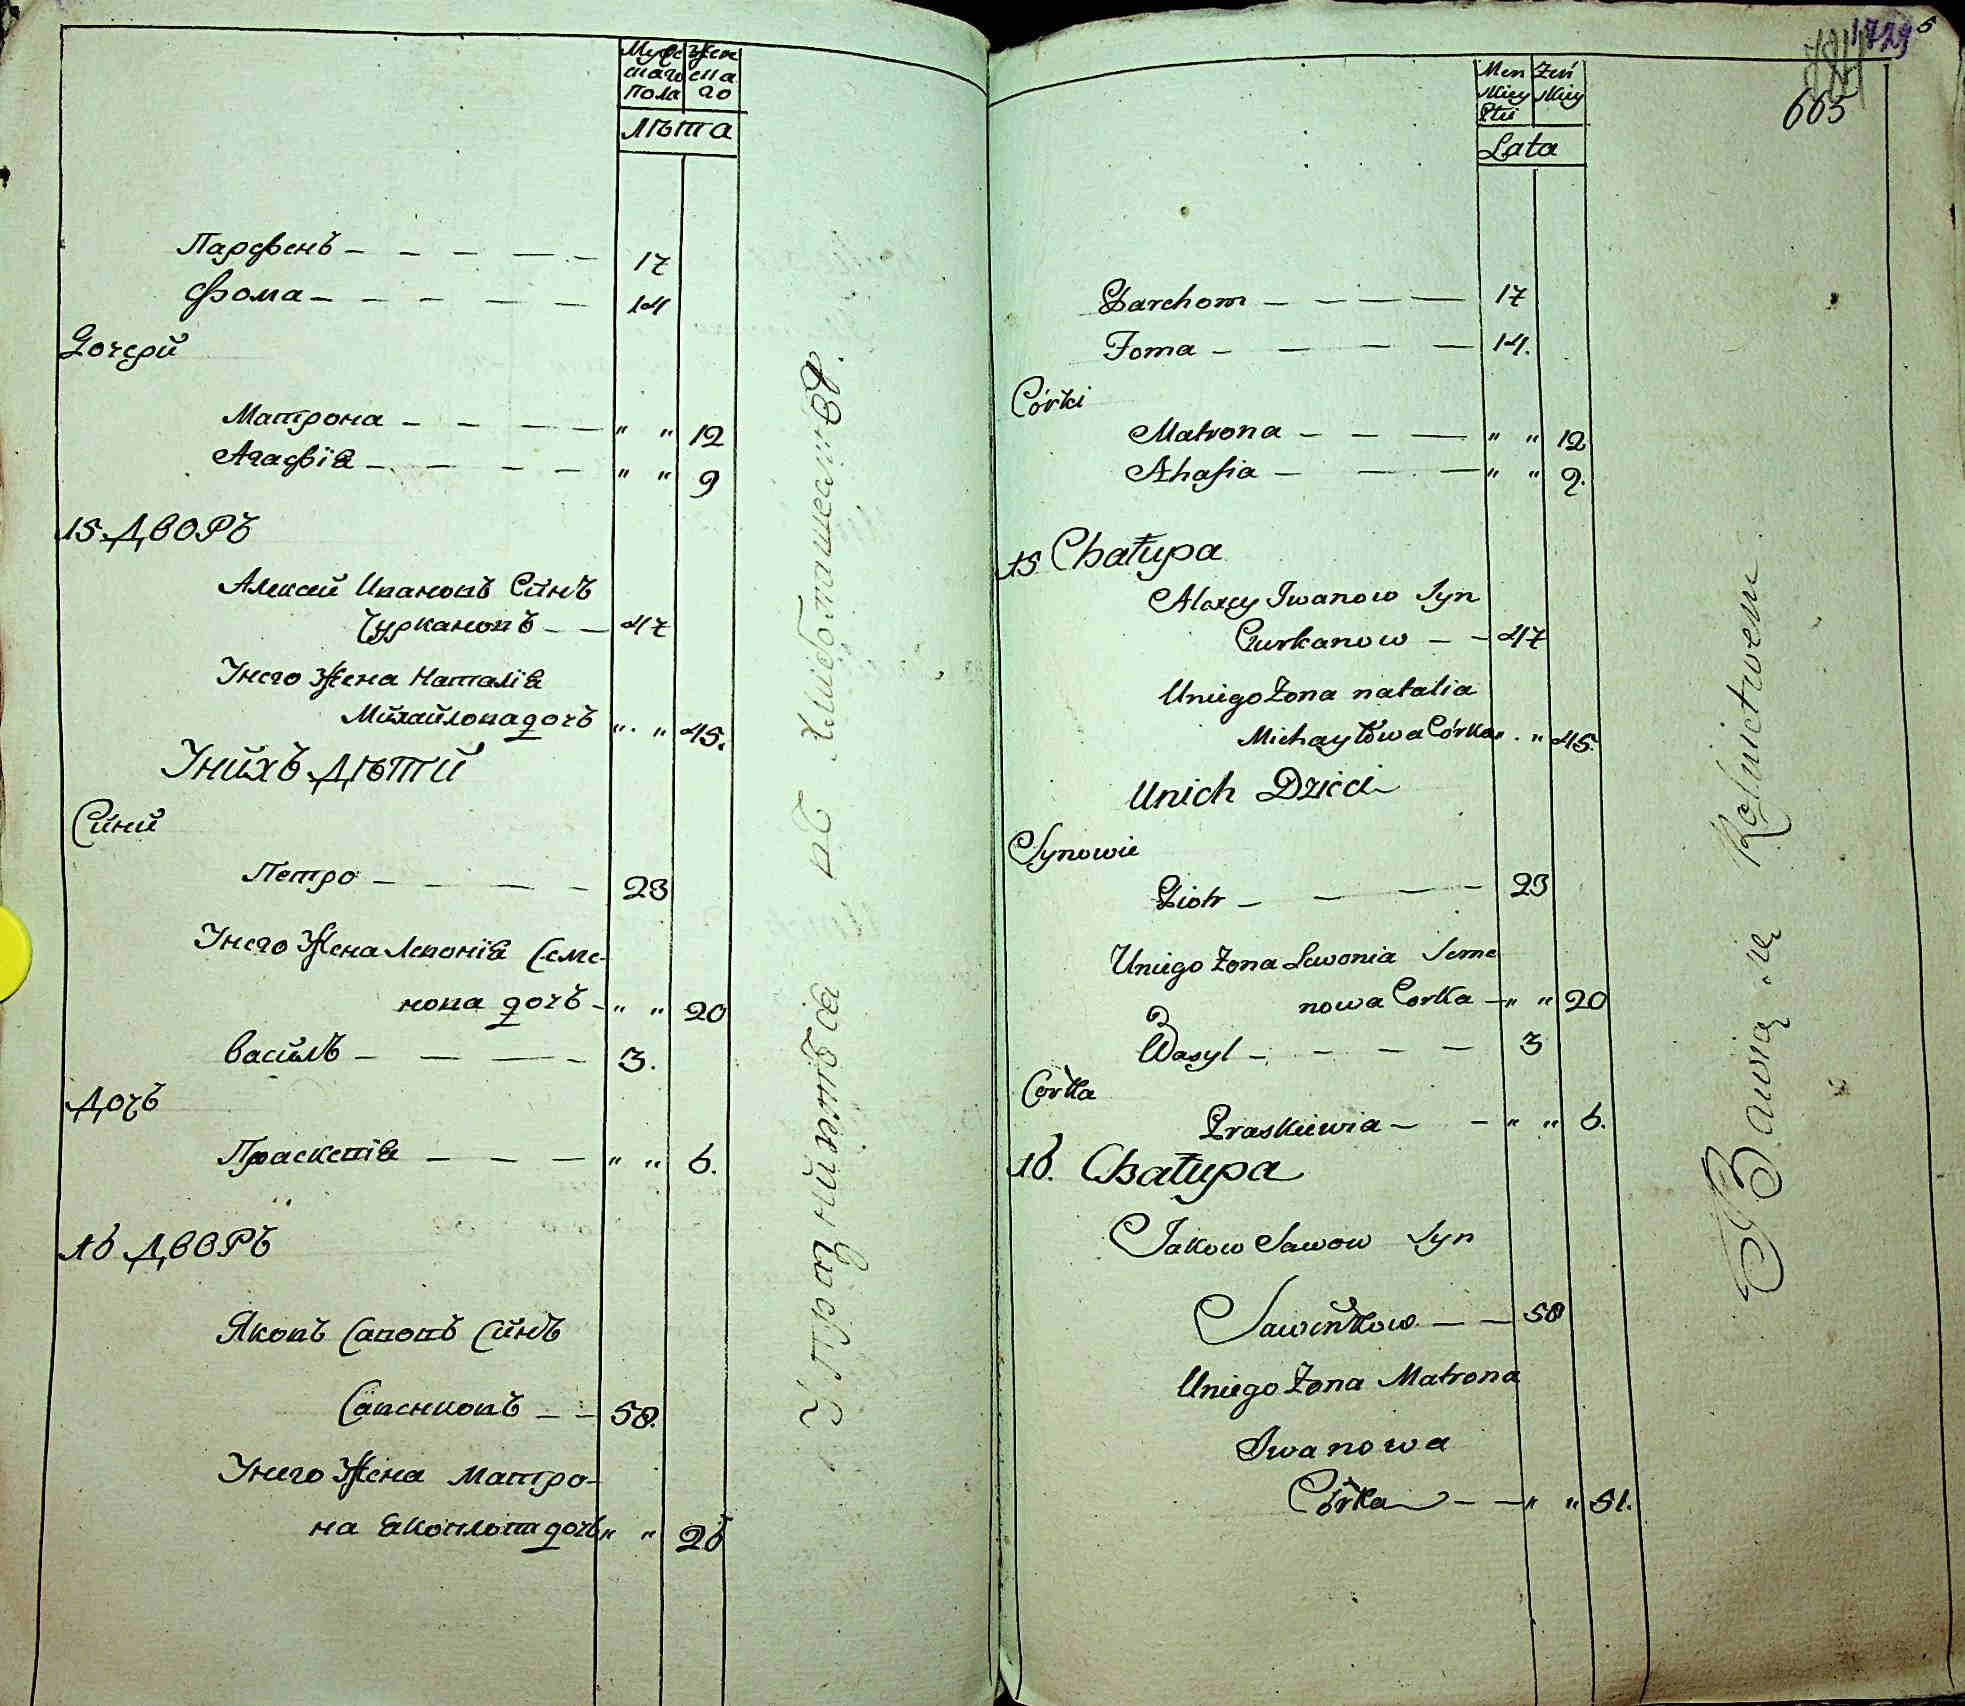 Муже Жен
скаго ска
пола го
лѣта
Парфенъ — — — — — 17
Фома — — — — — 14
Дочери
Матрона — — — — " " 12
Агафія — — — — " " 9
15 ДВОРЪ
Алексей Ивановъ Синъ
Чуркановъ — — 47
Унего Жена Наталія
Михайлова дочъ " " 45.
Унихъ Дѣти
Сини
Петро — — — — 23
Унего Жена Левонія Семе-
нова дочъ — " " 20
Василъ — — — — 3.
Дочъ
Праскевія — — — " " 6.
16 ДВОРЪ
Яковъ Савовъ Синъ
Савенковъ — — 58.
Унего Жена Матро-
на дочъ " " 26
Упражнится въ Хлибопашествѣ.
1729 5
665
Men Zeń
skiey skiey
Płci
Lata
Parchom — — — — 17
Foma — — — — 14.
Córki
Matrona — — — " " 12
Ahafia — — — " " 9.
15 Chałupa
Alexey Iwanow Syn
Czurkanow — — 47
Uniego Zona natalia
Michayłowa Córka " " 45.
Unich Dzieci
Synowie
Piotr — — — — 23
Uniego Zona Lewonia Seme
nowa Corka — " " 20
Wasyl — — — — 3
Corka
Praskiewia — — " " 6.
16. Chałupa
Jakow Sawow Syn
Sawinkow — — 58
Uniego Zona Matrona
Iwanowa
Córka — — " " 51.
Bawią się Rolnictwem